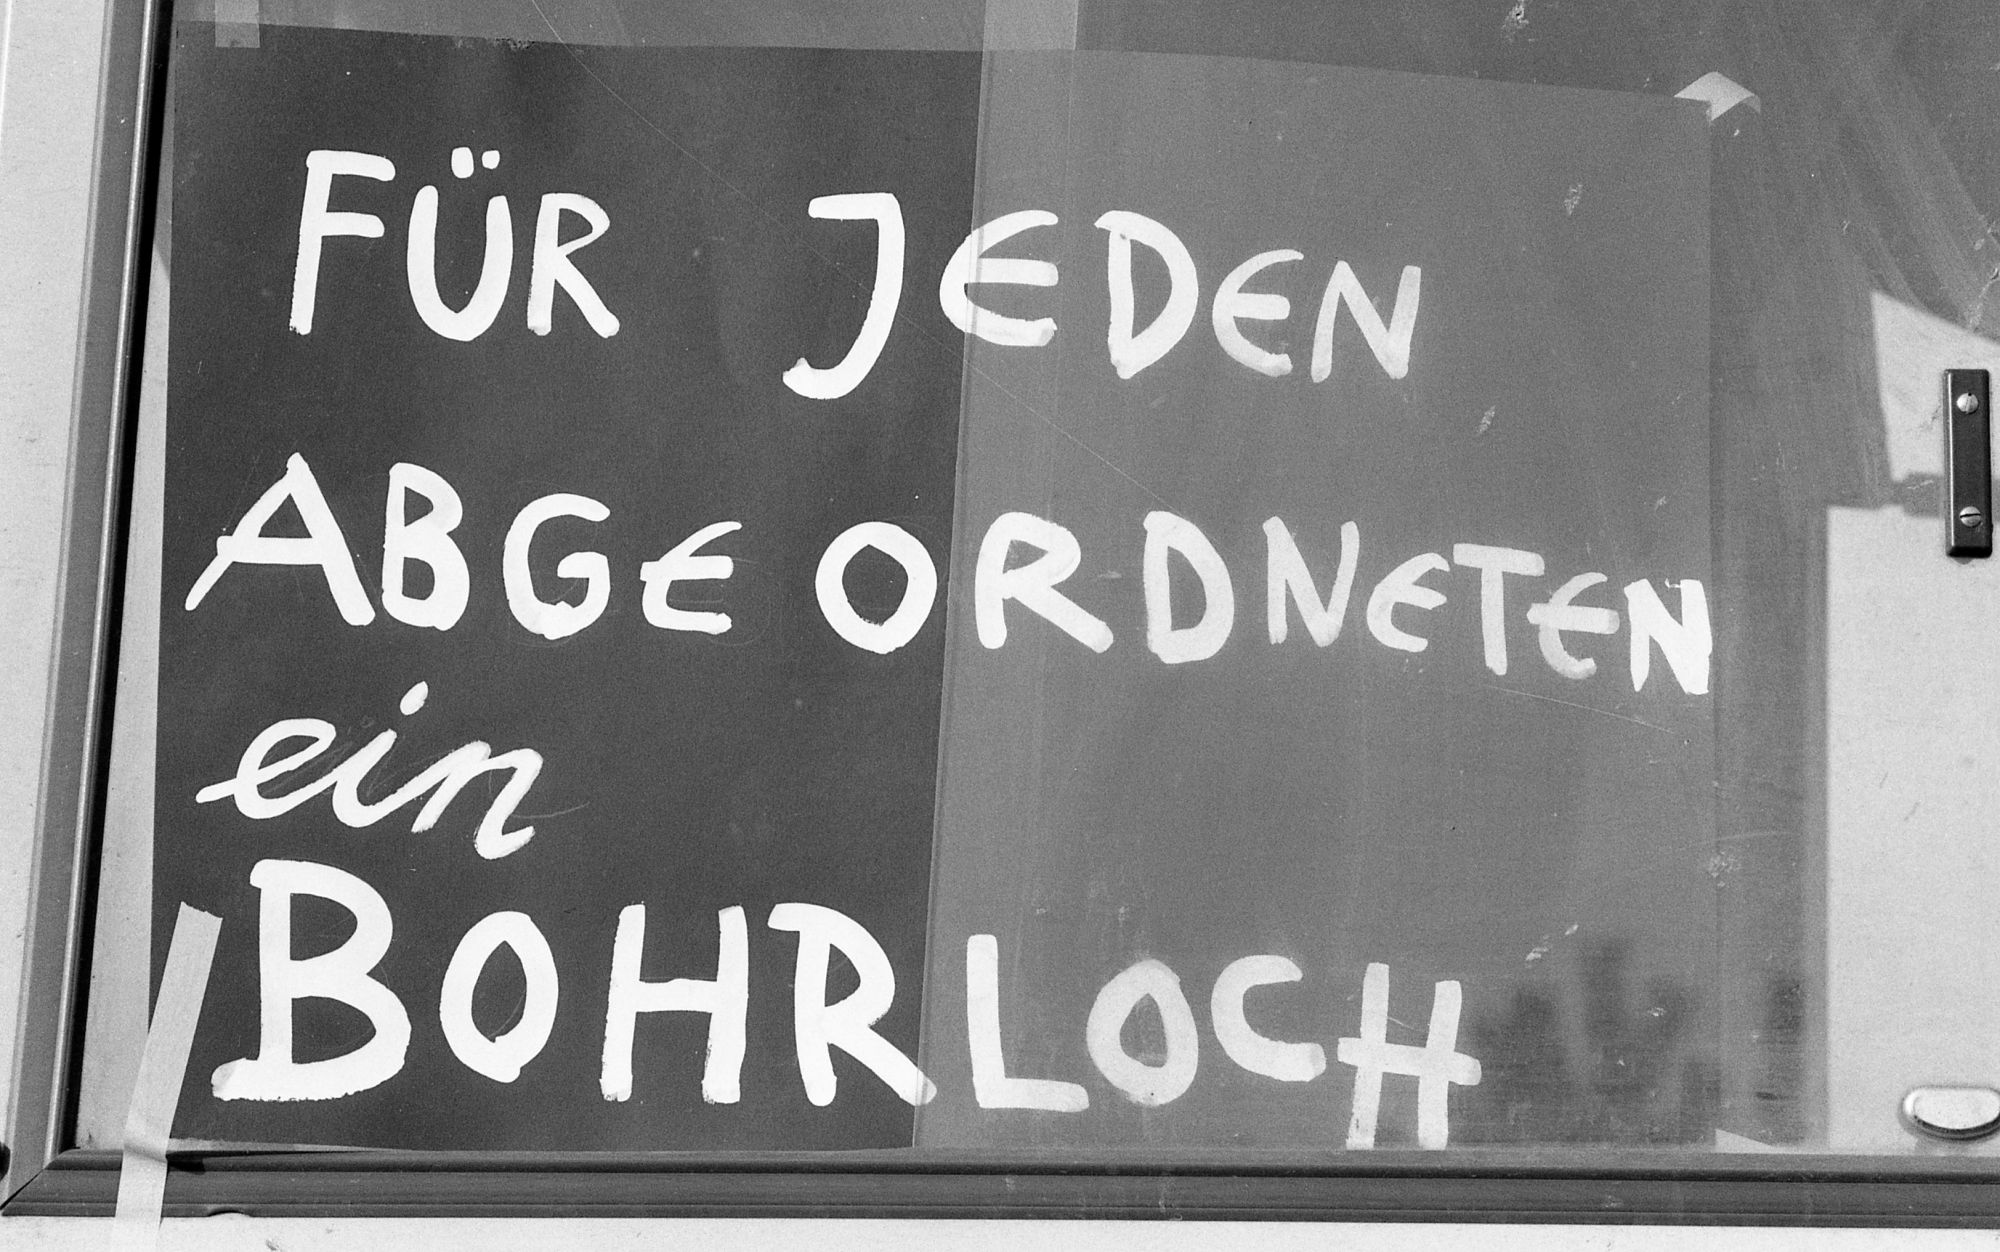 FÜR JEDEN
ABGEORDNETEN
ein
BOHRLOCH